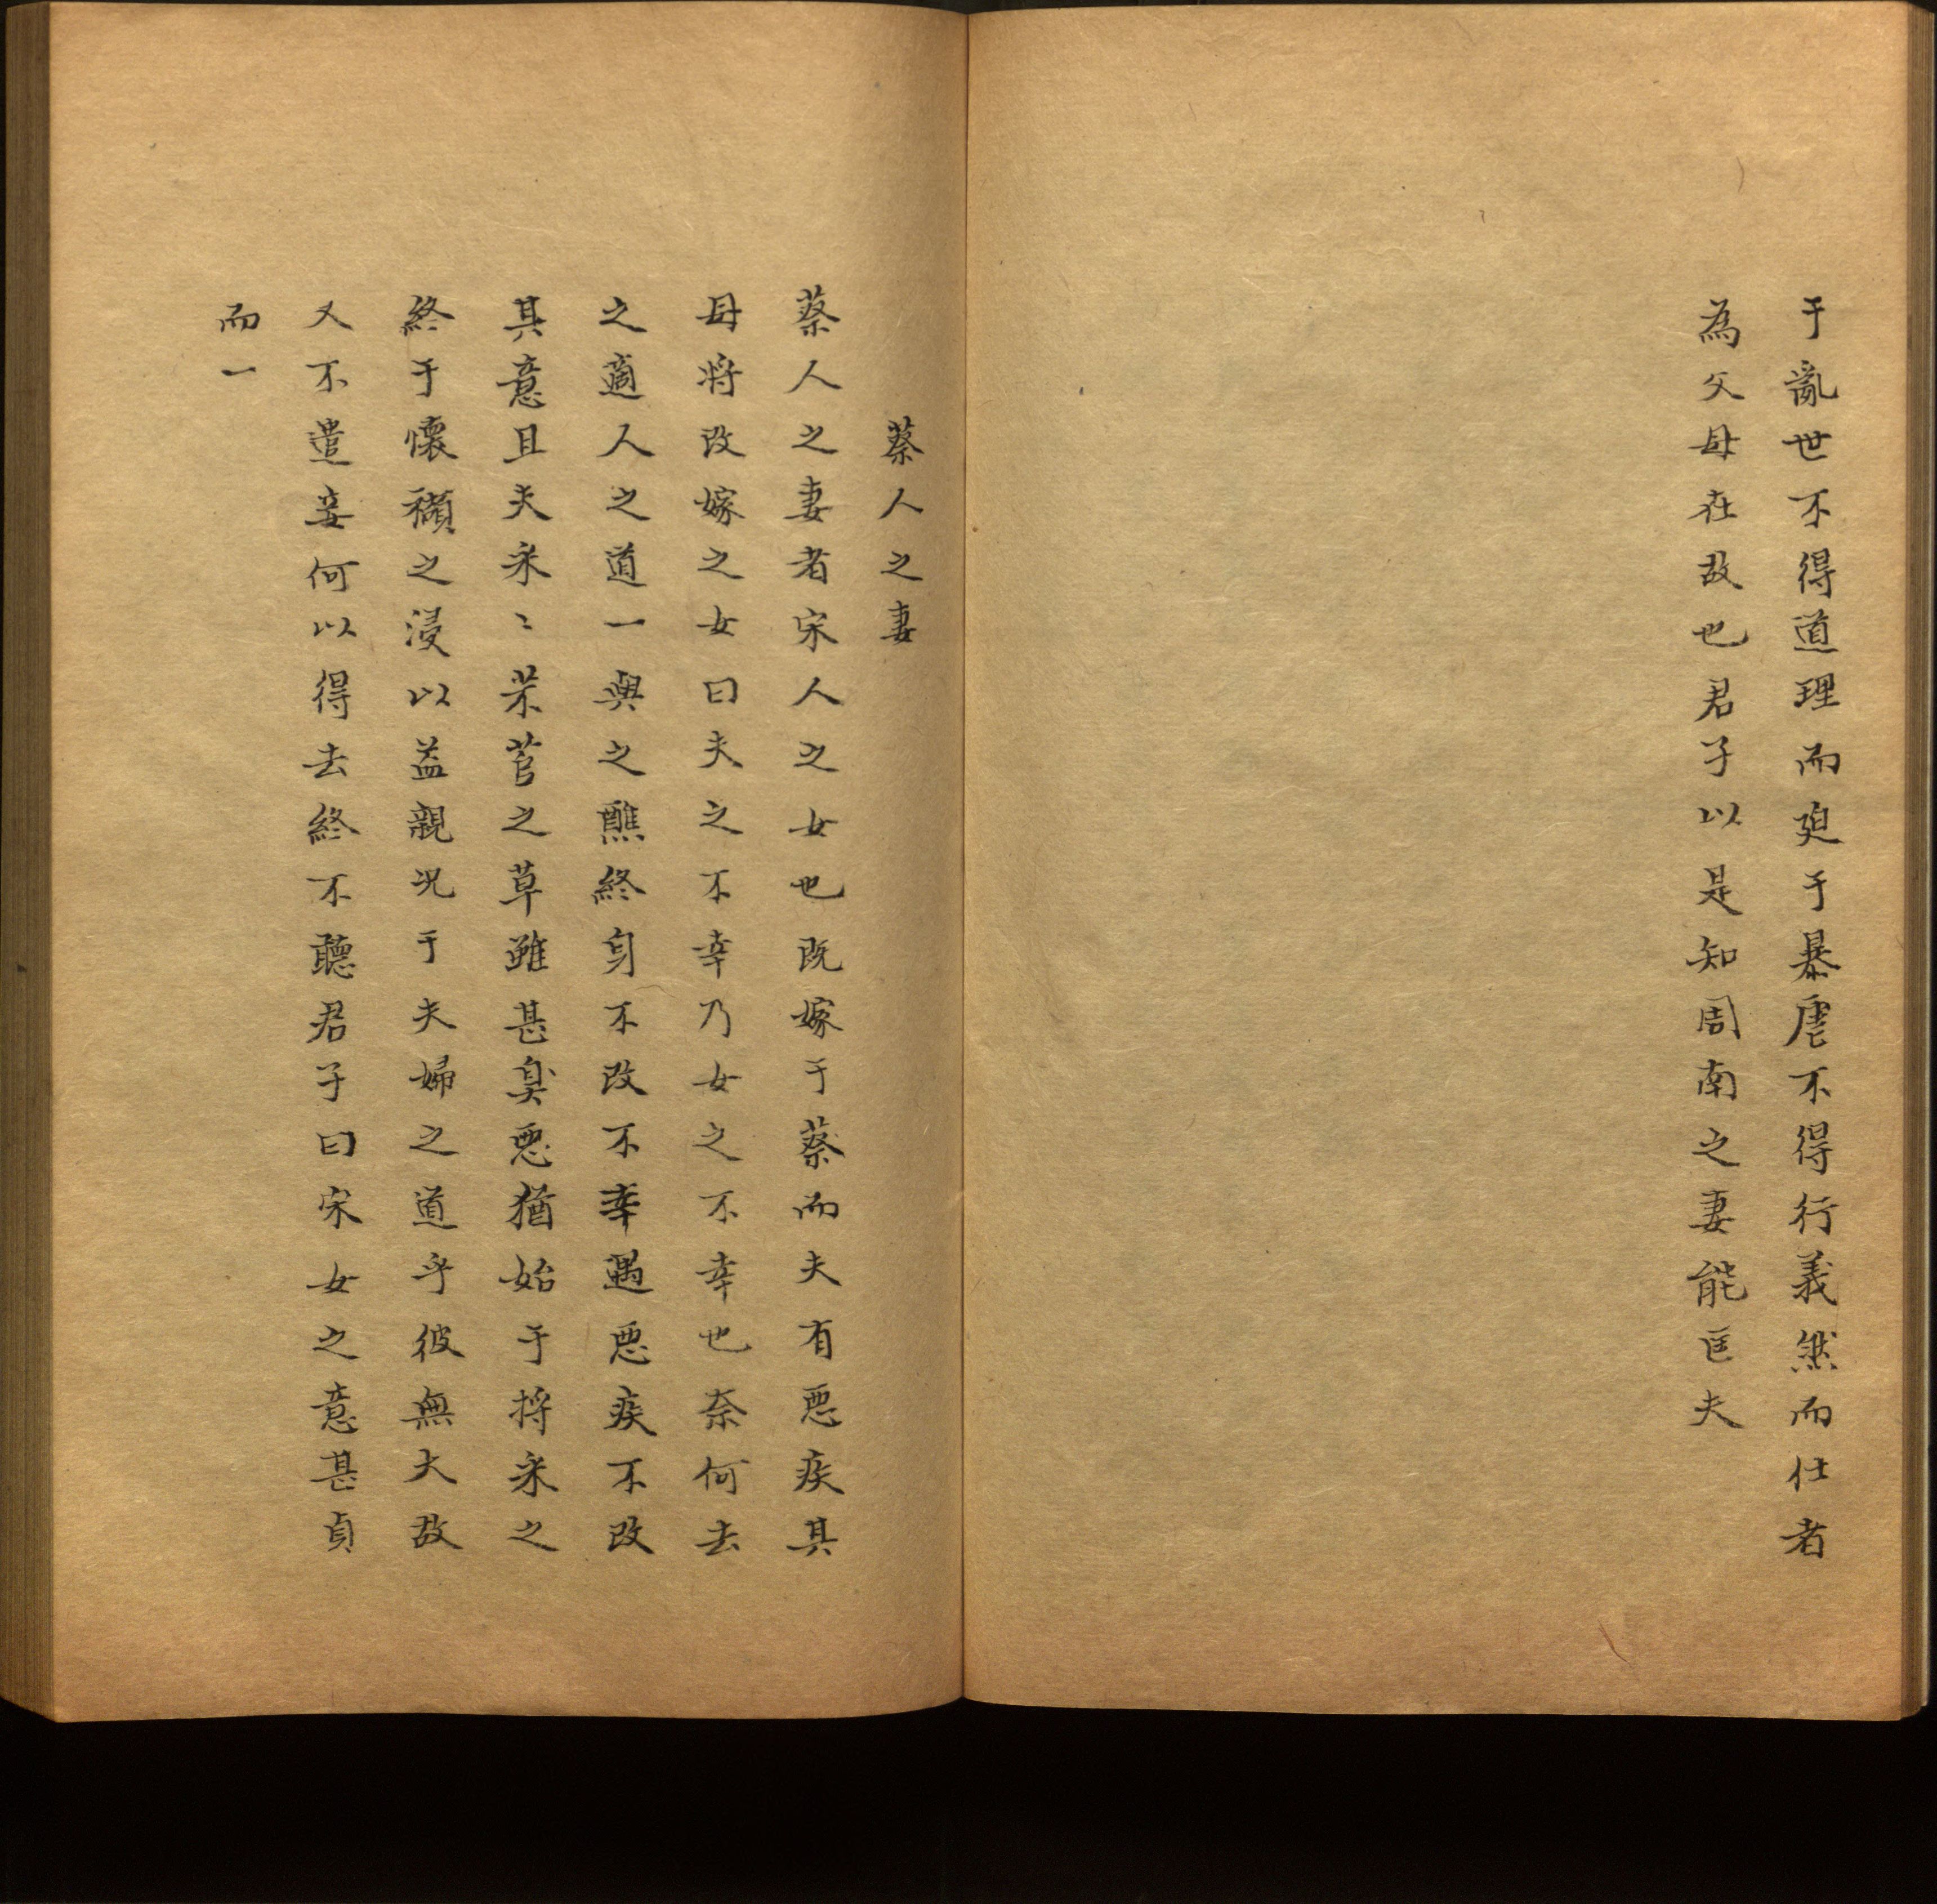 于亂世不得道理而廹于暴虐不得行義然而仕者
為父母在故也君子以是知周南之妻能匡夫
蔡人之妻
蔡人之妻者宋人之女也既嫁于蔡而夫有惡疾其
母将改嫁之女曰夫之不幸乃女之不幸也奈何去
之適人之道一與之醮終身不改不幸遇惡疾不改
其意且夫采〻芣苢之草雖甚臭惡猶始于捋采之
終于懷襭之浸以益親况于夫婦之道乎彼無大故
又不遣妾何以得去終不聽君子曰宋女之意甚貞
而一